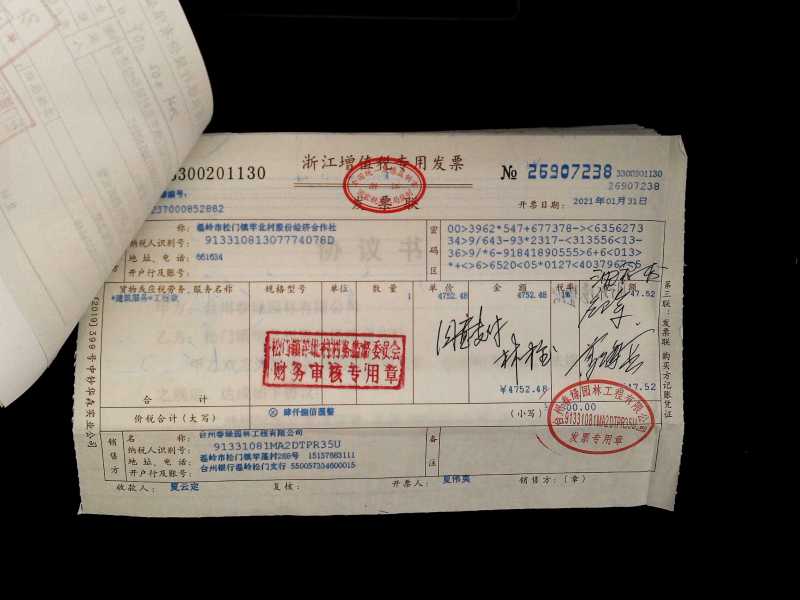 3300201130
浙江增值税专用发票
№ 26907238
3300201130
26907238
发票联
开票日期： 2021年01月31日
237000852882
称： 温岭市松门镇苹北村股份经济合作社
纳税人识别号： 91331081307774078D
地址、电话： 661634
开户行及账号：
密码区
00>3962*547+677378-><6356273
34>9/643-93*2317-<313556<13-
36>9/*6-91841890555>6+6<013>
货物或应税劳务、服务名称
规格型号
单位
数量
单价
金额
税率
*建筑服务*工程款
1
4752.48
4752.48
1%
47.52
同意支付
松门镇苹北村村务监督委员会
财务审核专用章
合计
￥4752.48
价税合计（大写）
⊗ 肆仟捌佰圆整
（小写）
销售方
名称： 台州春绿园林工程有限公司
纳税人识别号： 91331081MA2DTPR35U
地址、电话： 温岭市松门镇苹莲村289号 15157683111
开户行及账号： 台州银行温岭松门支行 550057334600015
备注
台州春绿园林工程有限公司
91331081MA2DTPR35U
发票专用章
收款人： 夏云定
复核：
开票人： 夏伟英
销售方：（章）
第三联：发票联 购买方记账凭证